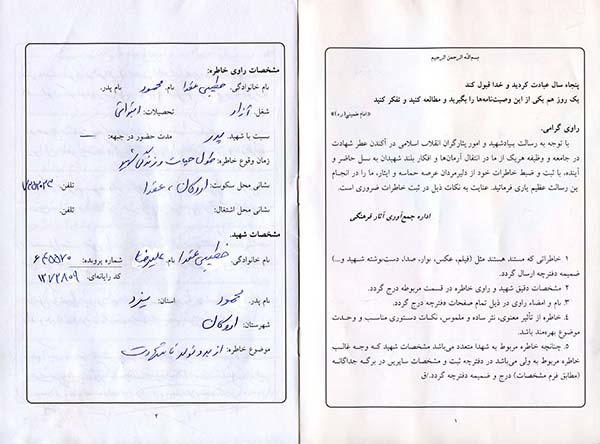 بسم‌الله الرحمن الرحیم
پنجاه سال عبادت کردید و خدا قبول کند
یک روز هم یکی از این وصیت‌نامه‌ها را بگیرید و مطالعه کنید و تفکر کنید
«امام خمینی(ره)»
راوی گرامی.
با توجه به رسالت بنیادشهید و امور ایثارگران انقلاب اسلامی در آکندن عطر شهادت
در جامعه و وظیفه هریک از ما در انتقال آرمان‌ها و افکار بلند شهیدان به نسل حاضر و
آینده، با ثبت و ضبط خاطرات خود از دلیرمردان عرصه حماسه و ایثار، ما را در انجام
این رسالت عظیم یاری فرمائید. عنایت به نکات ذیل در ثبت خاطرات ضروری است.
اداره جمع‌آوری آثار فرهنگی
۱ خاطراتی که مستند هستند مثل (فیلم، عکس، نوار، صدا، دست‌نوشته شهید و...)
ضمیمه دفترچه ارسال گردد.
۲ مشخصات دقیق شهید و راوی خاطره در قسمت مربوطه درج گردد.
۳. نام و امضاء راوی در ذیل تمام صفحات دفترچه درج گردد.
۴. خاطره از تأثیر معنوی، نثر ساده و ملموس، نکات دستوری مناسب و وحدت
موضوع بهره‌مند باشد.
۵. چنانچه خاطره مربوط به شهدا متعدد می‌باشد مشخصات شهید که وجه غالب
خاطره مربوط به ولی می‌باشد در دفترچه ثبت و مشخصات سایرین در برگه جداگانه
(مطابق فرم مشخصات) درج و ضمیمه دفترچه گردد./ق
۱
مشخصات راوی خاطره:
نام خانوادگی. خطیبی عقدا نام. محمود نام پدر.
شغل. آزاد تحصیلات: ابتدائی
نسبت با شهید. پدر مدت حضور در جبهه: —
زمان وقوع خاطره: طول حیات و زندگی شهید
نشانی محل سکونت: اردکان، عقدا تلفن.
نشانی محل اشتغال: تلفن.
مشخصات شهید:
نام خانوادگی. خطیبی عقدا نام. علیرضا شماره پرونده: ۶۴۵۵۲۰
کد رایانه‌ای. ۱۲۷۲۸۰۹
نام پدر. محمود استان: یزد
شهرستان: اردکان
موضوع خاطره: از بدو تولد تا شهادت
۲